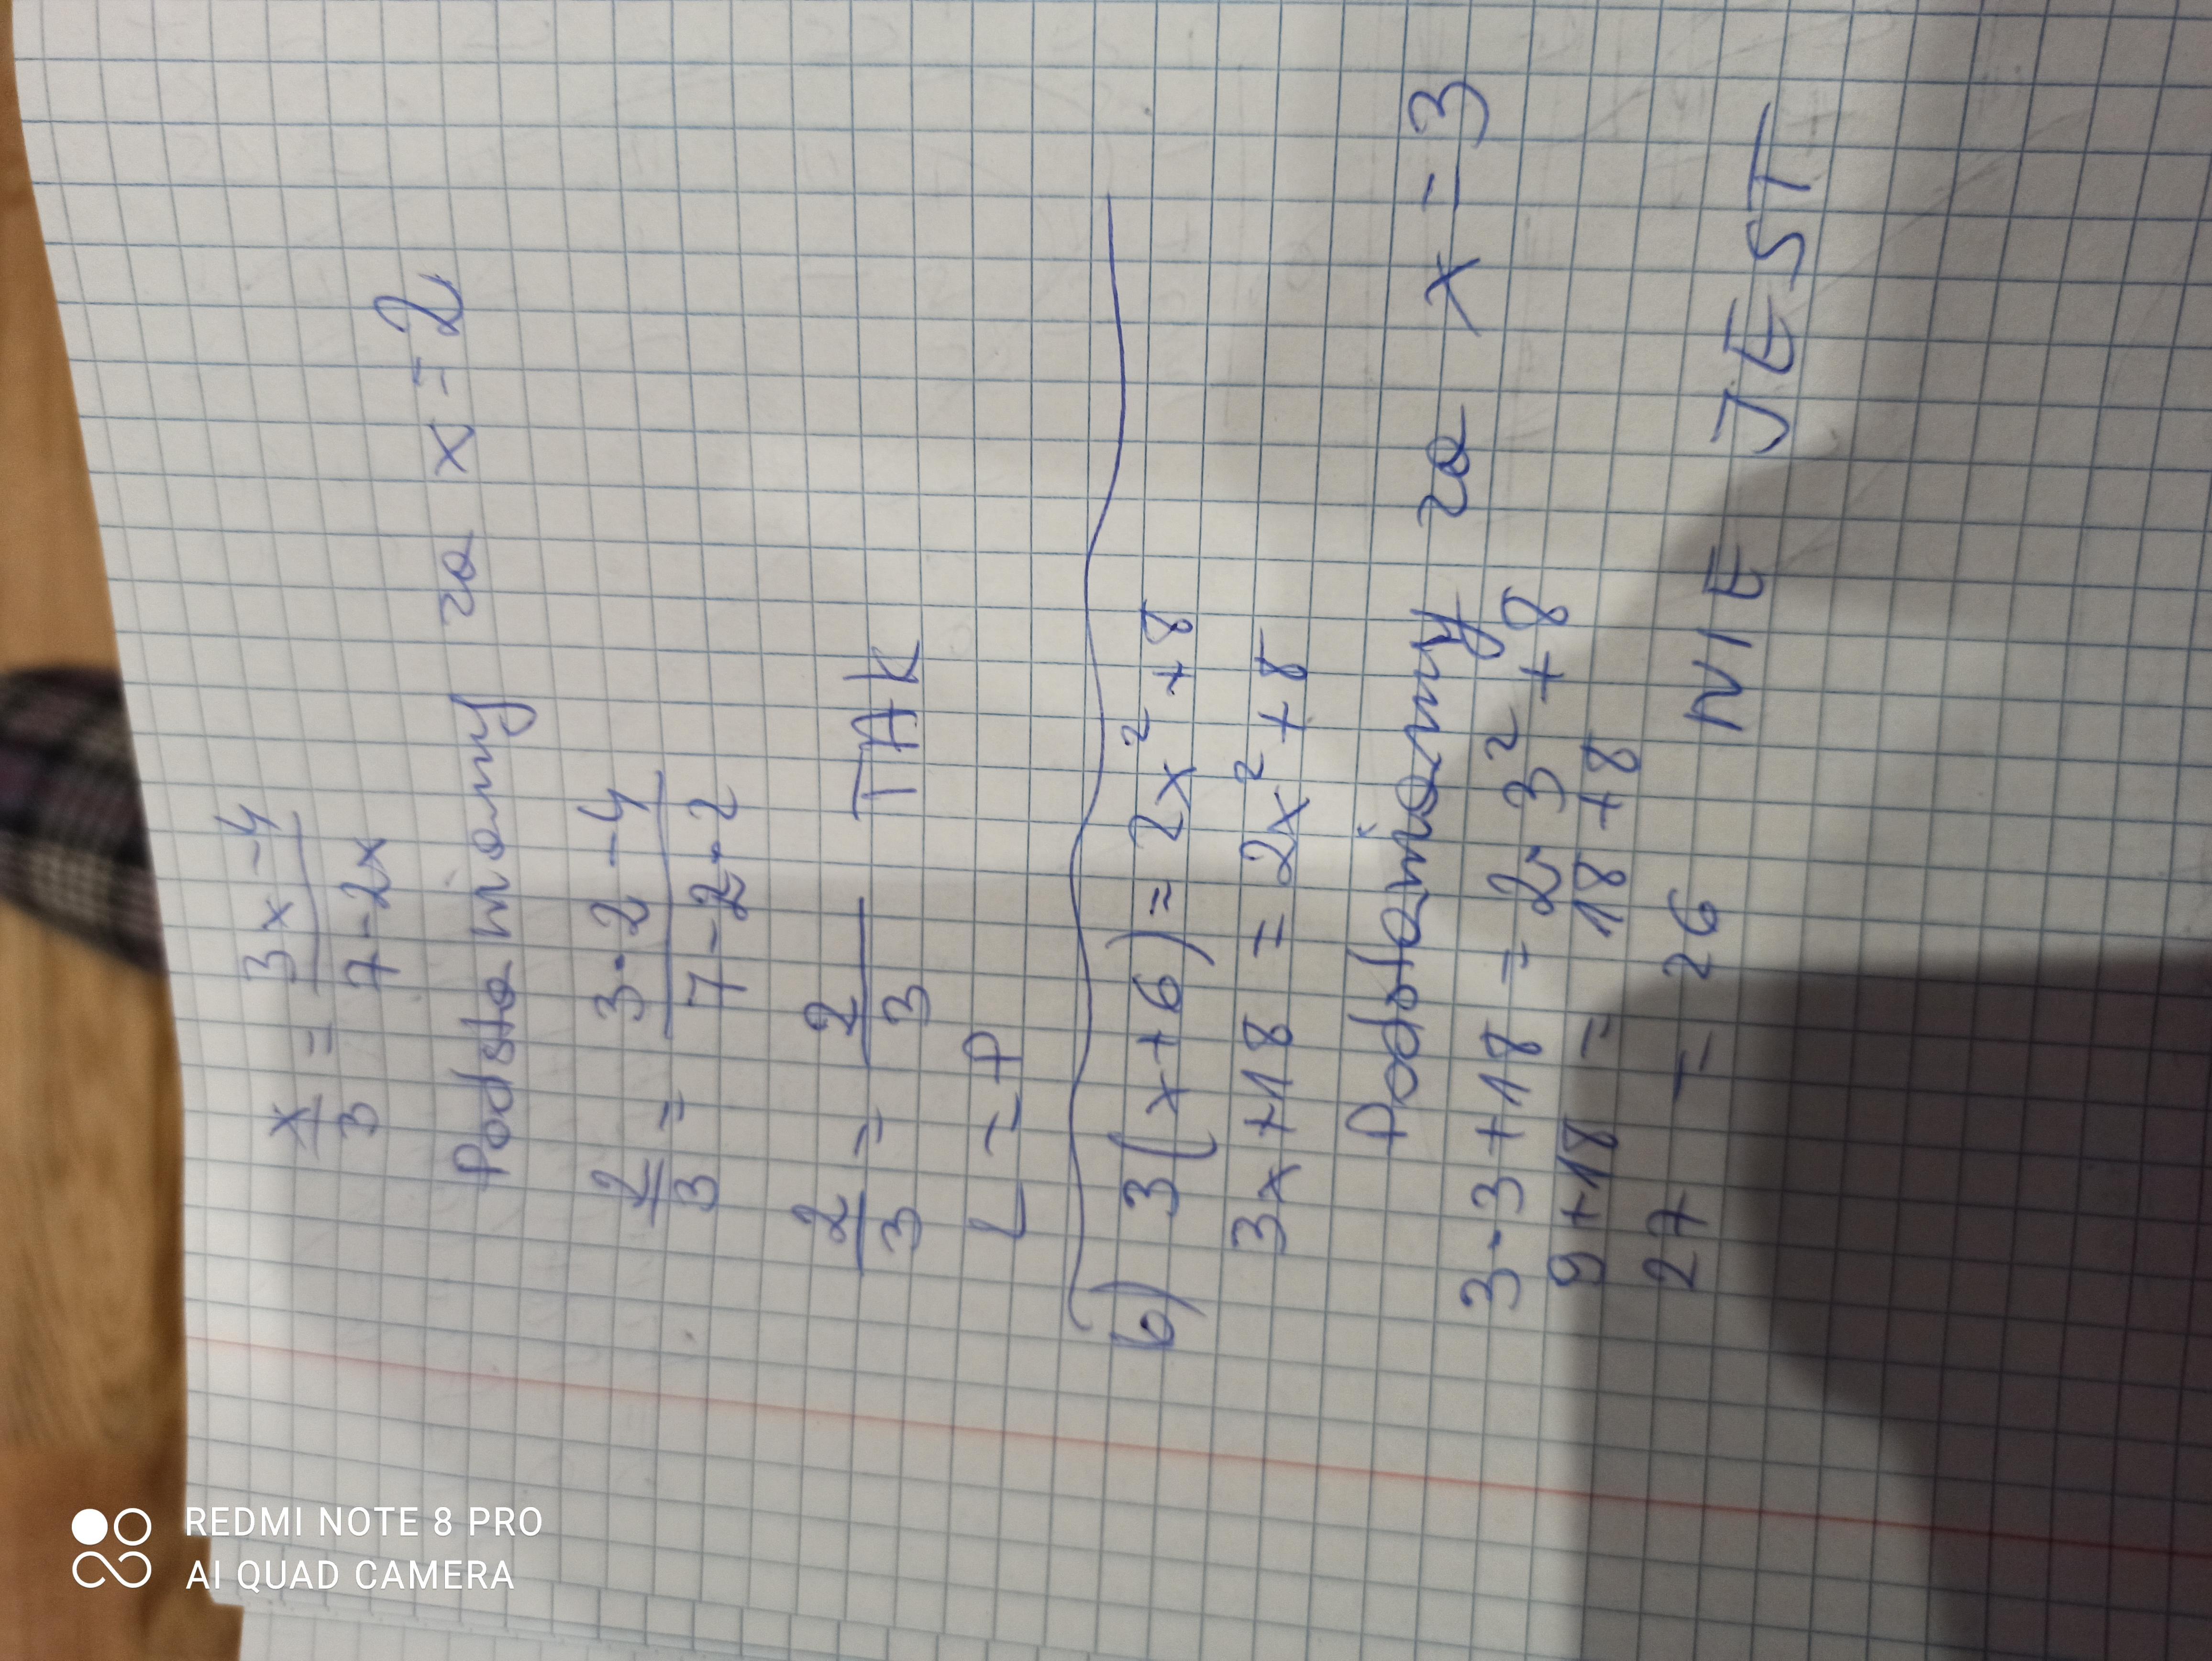 x/3 = 3x-4/7-2x
Podstawiamy za x = 2
2/3 = 3·2-4/7-2·2
2/3 = 2/3 TAK
L = P
b) 3(x+6) = 2x²+8
3x+18 = 2x²+8
Podstawiamy za x = 3
3·3+18 = 2·3²+8
9+18 = 18+8
27 = 26 NIE JEST
REDMI NOTE 8 PRO
AI QUAD CAMERA